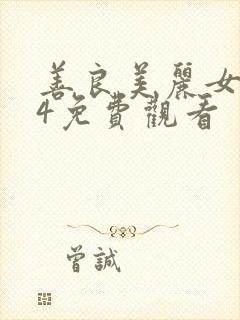 善良美麗女
4免費觀看
曾誠